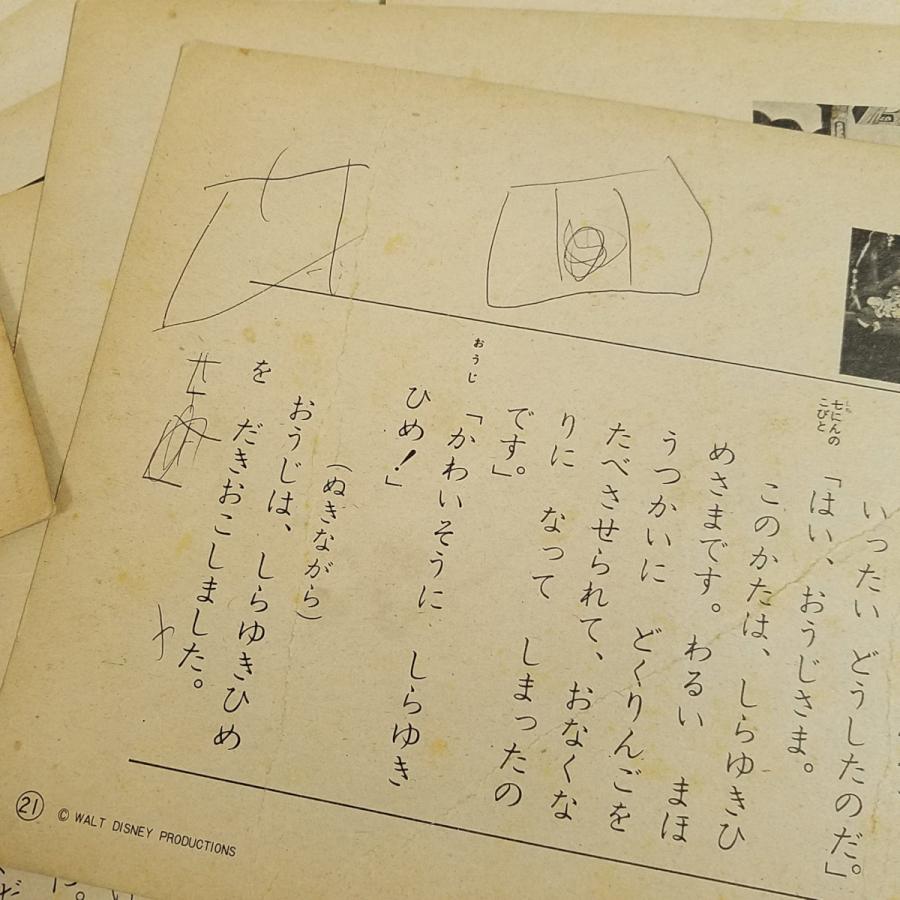 いったい どうしたのだ。」
七にんの
こびと
「はい、おうじさま。
このかたは、しらゆきひ
めさまです。わるい まほ
うつかいに どくりんごを
たべさせられて、おなくな
りに なって しまったの
です」。
おうじ
「かわいそうに しらゆき
ひめ!」
(ぬきながら)
おうじは、しらゆきひめ
を だきおこしました。
21
© WALT DISNEY PRODUCTIONS